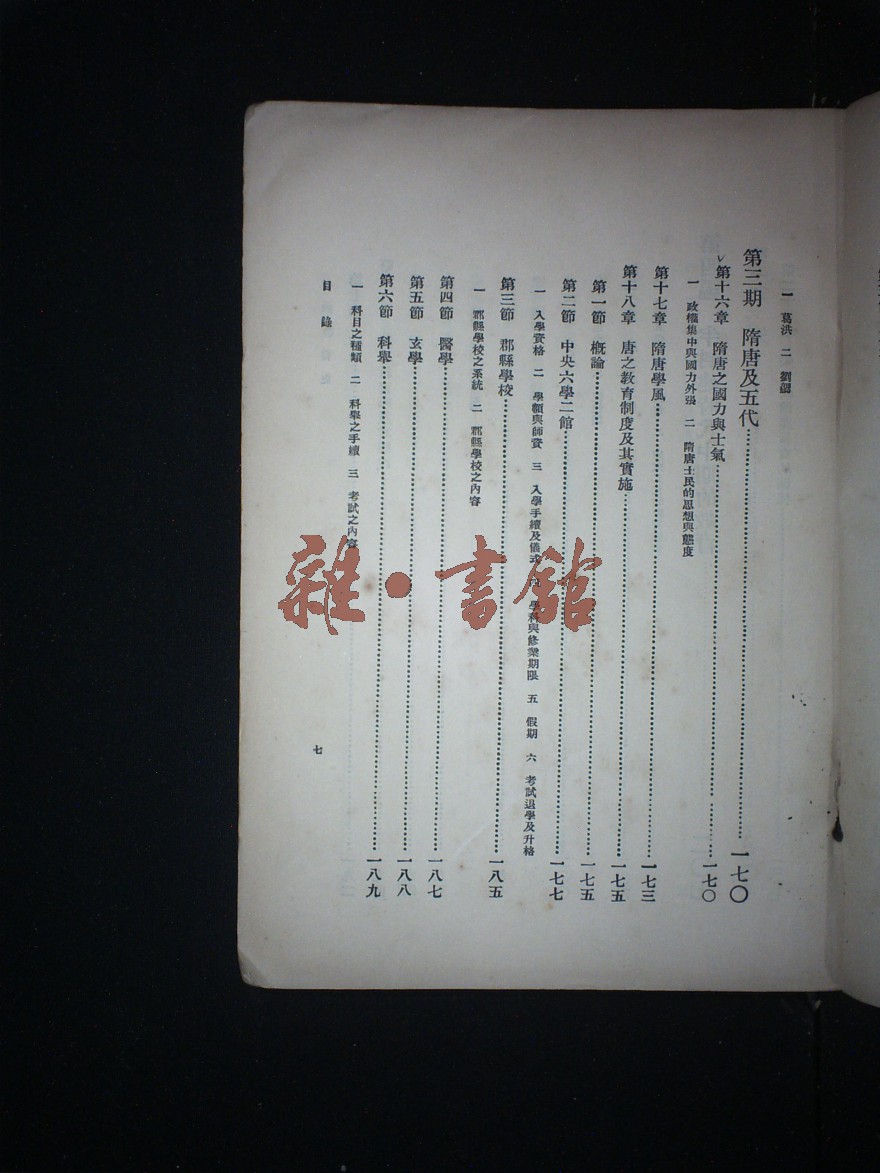 一 葛洪 二 劉勰
第三期 隋唐及五代 一七〇
第十六章 隋唐之國力與士氣 一七〇
一 政權集中與國力外張 二 隋唐士民的思想與態度
第十七章 隋唐學風 一七三
第十八章 唐之教育制度及其實施 一七五
第一節 概論 一七五
第二節 中央六學二館 一七七
一 入學資格 二 學額與師資 三 入學手續及儀式 四 學科與修業期限 五 假期 六 考試退學及升格
第三節 郡縣學校 一八五
一 郡縣學校之系統 二 郡縣學校之內容
第四節 醫學 一八七
第五節 玄學 一八八
第六節 科舉 一八九
一 科目之種類 二 科舉之手續 三 考試之內容
目錄
七
雜·書館